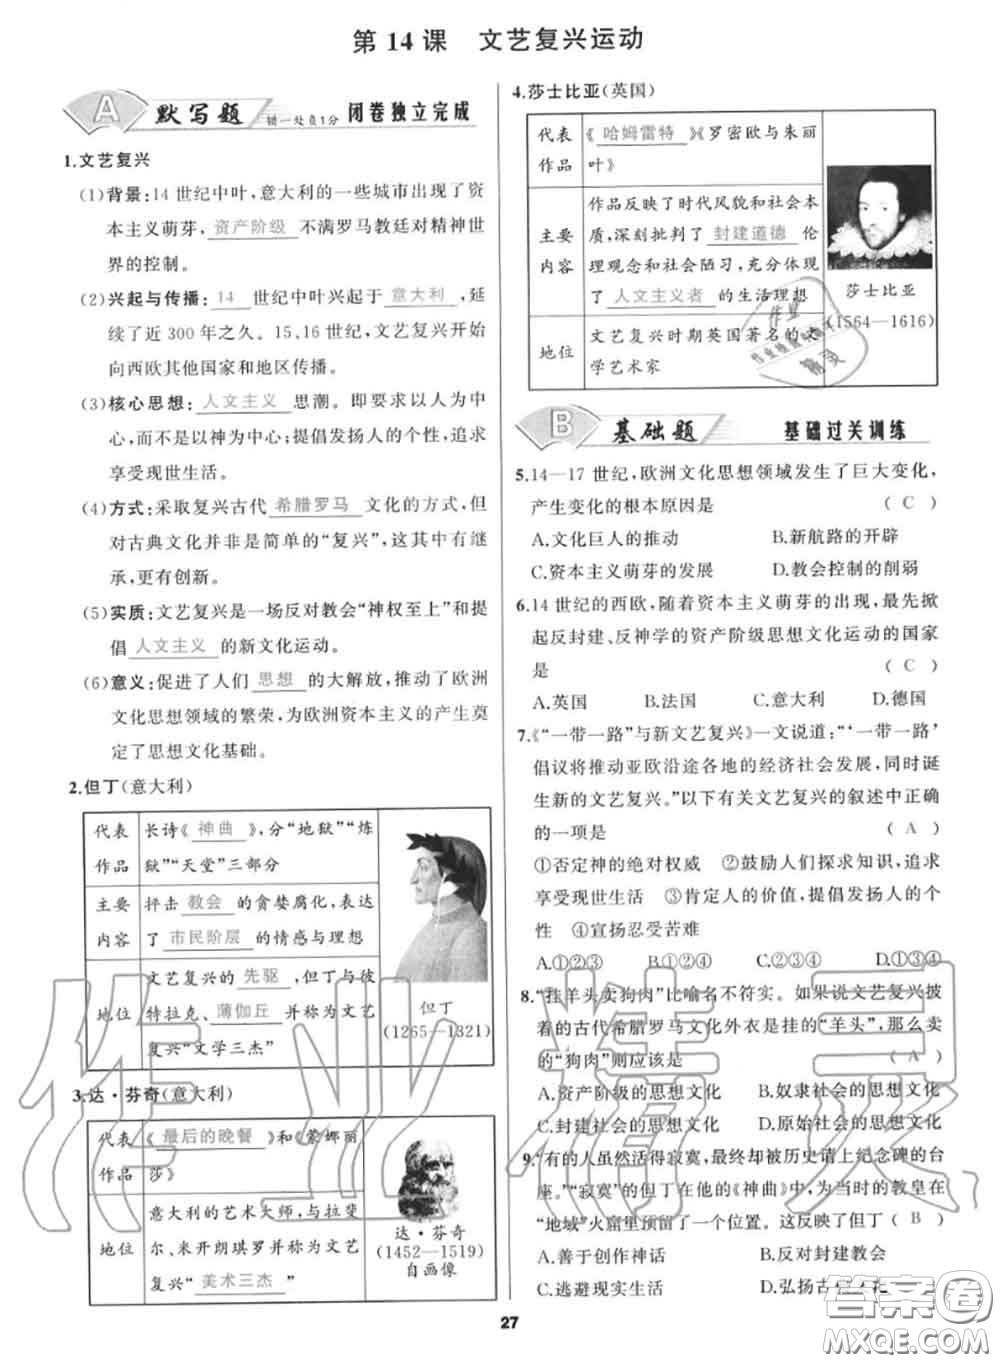 第 14 课 文艺复兴运动
A 默写题 错一处负1分 闭卷独立完成
1.文艺复兴
(1)背景:14 世纪中叶,意大利的一些城市出现了资
本主义萌芽,资产阶级不满罗马教廷对精神世
界的控制。
(2)兴起与传播:14 世纪中叶兴起于意大利,延
续了近 300 年之久。15、16 世纪,文艺复兴开始
向西欧其他国家和地区传播。
(3)核心思想:人文主义思潮。即要求以人为中
心,而不是以神为中心;提倡发扬人的个性,追求
享受现世生活。
(4)方式:采取复兴古代希腊罗马文化的方式,但
对古典文化并非是简单的“复兴”,这其中有继
承,更有创新。
(5)实质:文艺复兴是一场反对教会“神权至上”和提
倡人文主义的新文化运动。
(6)意义:促进了人们思想的大解放,推动了欧洲
文化思想领域的繁荣,为欧洲资本主义的产生奠
定了思想文化基础。
2.但丁(意大利)
代表作品 长诗《神曲》,分“地狱”“炼
狱”“天堂”三部分
主要内容 抨击教会的贪婪腐化,表达
了市民阶层的情感与理想
地位 文艺复兴的先驱,但丁与彼
特拉克、薄伽丘并称为文艺
复兴“文学三杰”
但丁
(1265—1321)
3.达·芬奇(意大利)
代表作品 《最后的晚餐》和《蒙娜丽
莎》
地位 意大利的艺术大师,与拉斐
尔、米开朗琪罗并称为文艺
复兴“美术三杰”
达·芬奇
(1452—1519)
自画像
4.莎士比亚(英国)
代表作品 《哈姆雷特》《罗密欧与朱丽
叶》
主要内容 作品反映了时代风貌和社会本
质,深刻批判了封建道德伦
理观念和社会陋习,充分体现
了人文主义者的生活理想
地位 文艺复兴时期英国著名的文
学艺术家
莎士比亚
(1564—1616)
B 基础题 基础过关训练
5.14—17 世纪,欧洲文化思想领域发生了巨大变化,
产生变化的根本原因是 ( C )
A.文化巨人的推动 B.新航路的开辟
C.资本主义萌芽的发展 D.教会控制的削弱
6.14 世纪的西欧,随着资本主义萌芽的出现,最先掀
起反封建、反神学的资产阶级思想文化运动的国家
是 ( C )
A.英国 B.法国 C.意大利 D.德国
7.《“一带一路”与新文艺复兴》一文说道:“‘一带一路’
倡议将推动亚欧沿途各地的经济社会发展,同时诞
生新的文艺复兴。”以下有关文艺复兴的叙述中正确
的一项是 ( A )
①否定神的绝对权威 ②鼓励人们探求知识,追求
享受现世生活 ③肯定人的价值,提倡发扬人的个
性 ④宣扬忍受苦难
A.①②③ B.①②④ C.①③④ D.②③④
8.“挂羊头卖狗肉”比喻名不符实。如果说文艺复兴披
着的古代希腊罗马文化外衣是挂的“羊头”,那么卖
的“狗肉”则应该是 ( A )
A.资产阶级的思想文化 B.奴隶社会的思想文化
C.封建社会的思想文化 D.原始社会的思想文化
9.“有的人虽然活得寂寞,最终却被历史请上纪念碑的台
座。”“寂寞”的但丁在他的《神曲》中,为当时的教皇在
“地域”火窟里预留了一个位置。这反映了但丁 ( B )
A.善于创作神话 B.反对封建教会
C.逃避现实生活 D.弘扬古代文化
27
作业精灵
答案圈
MXQE.COM